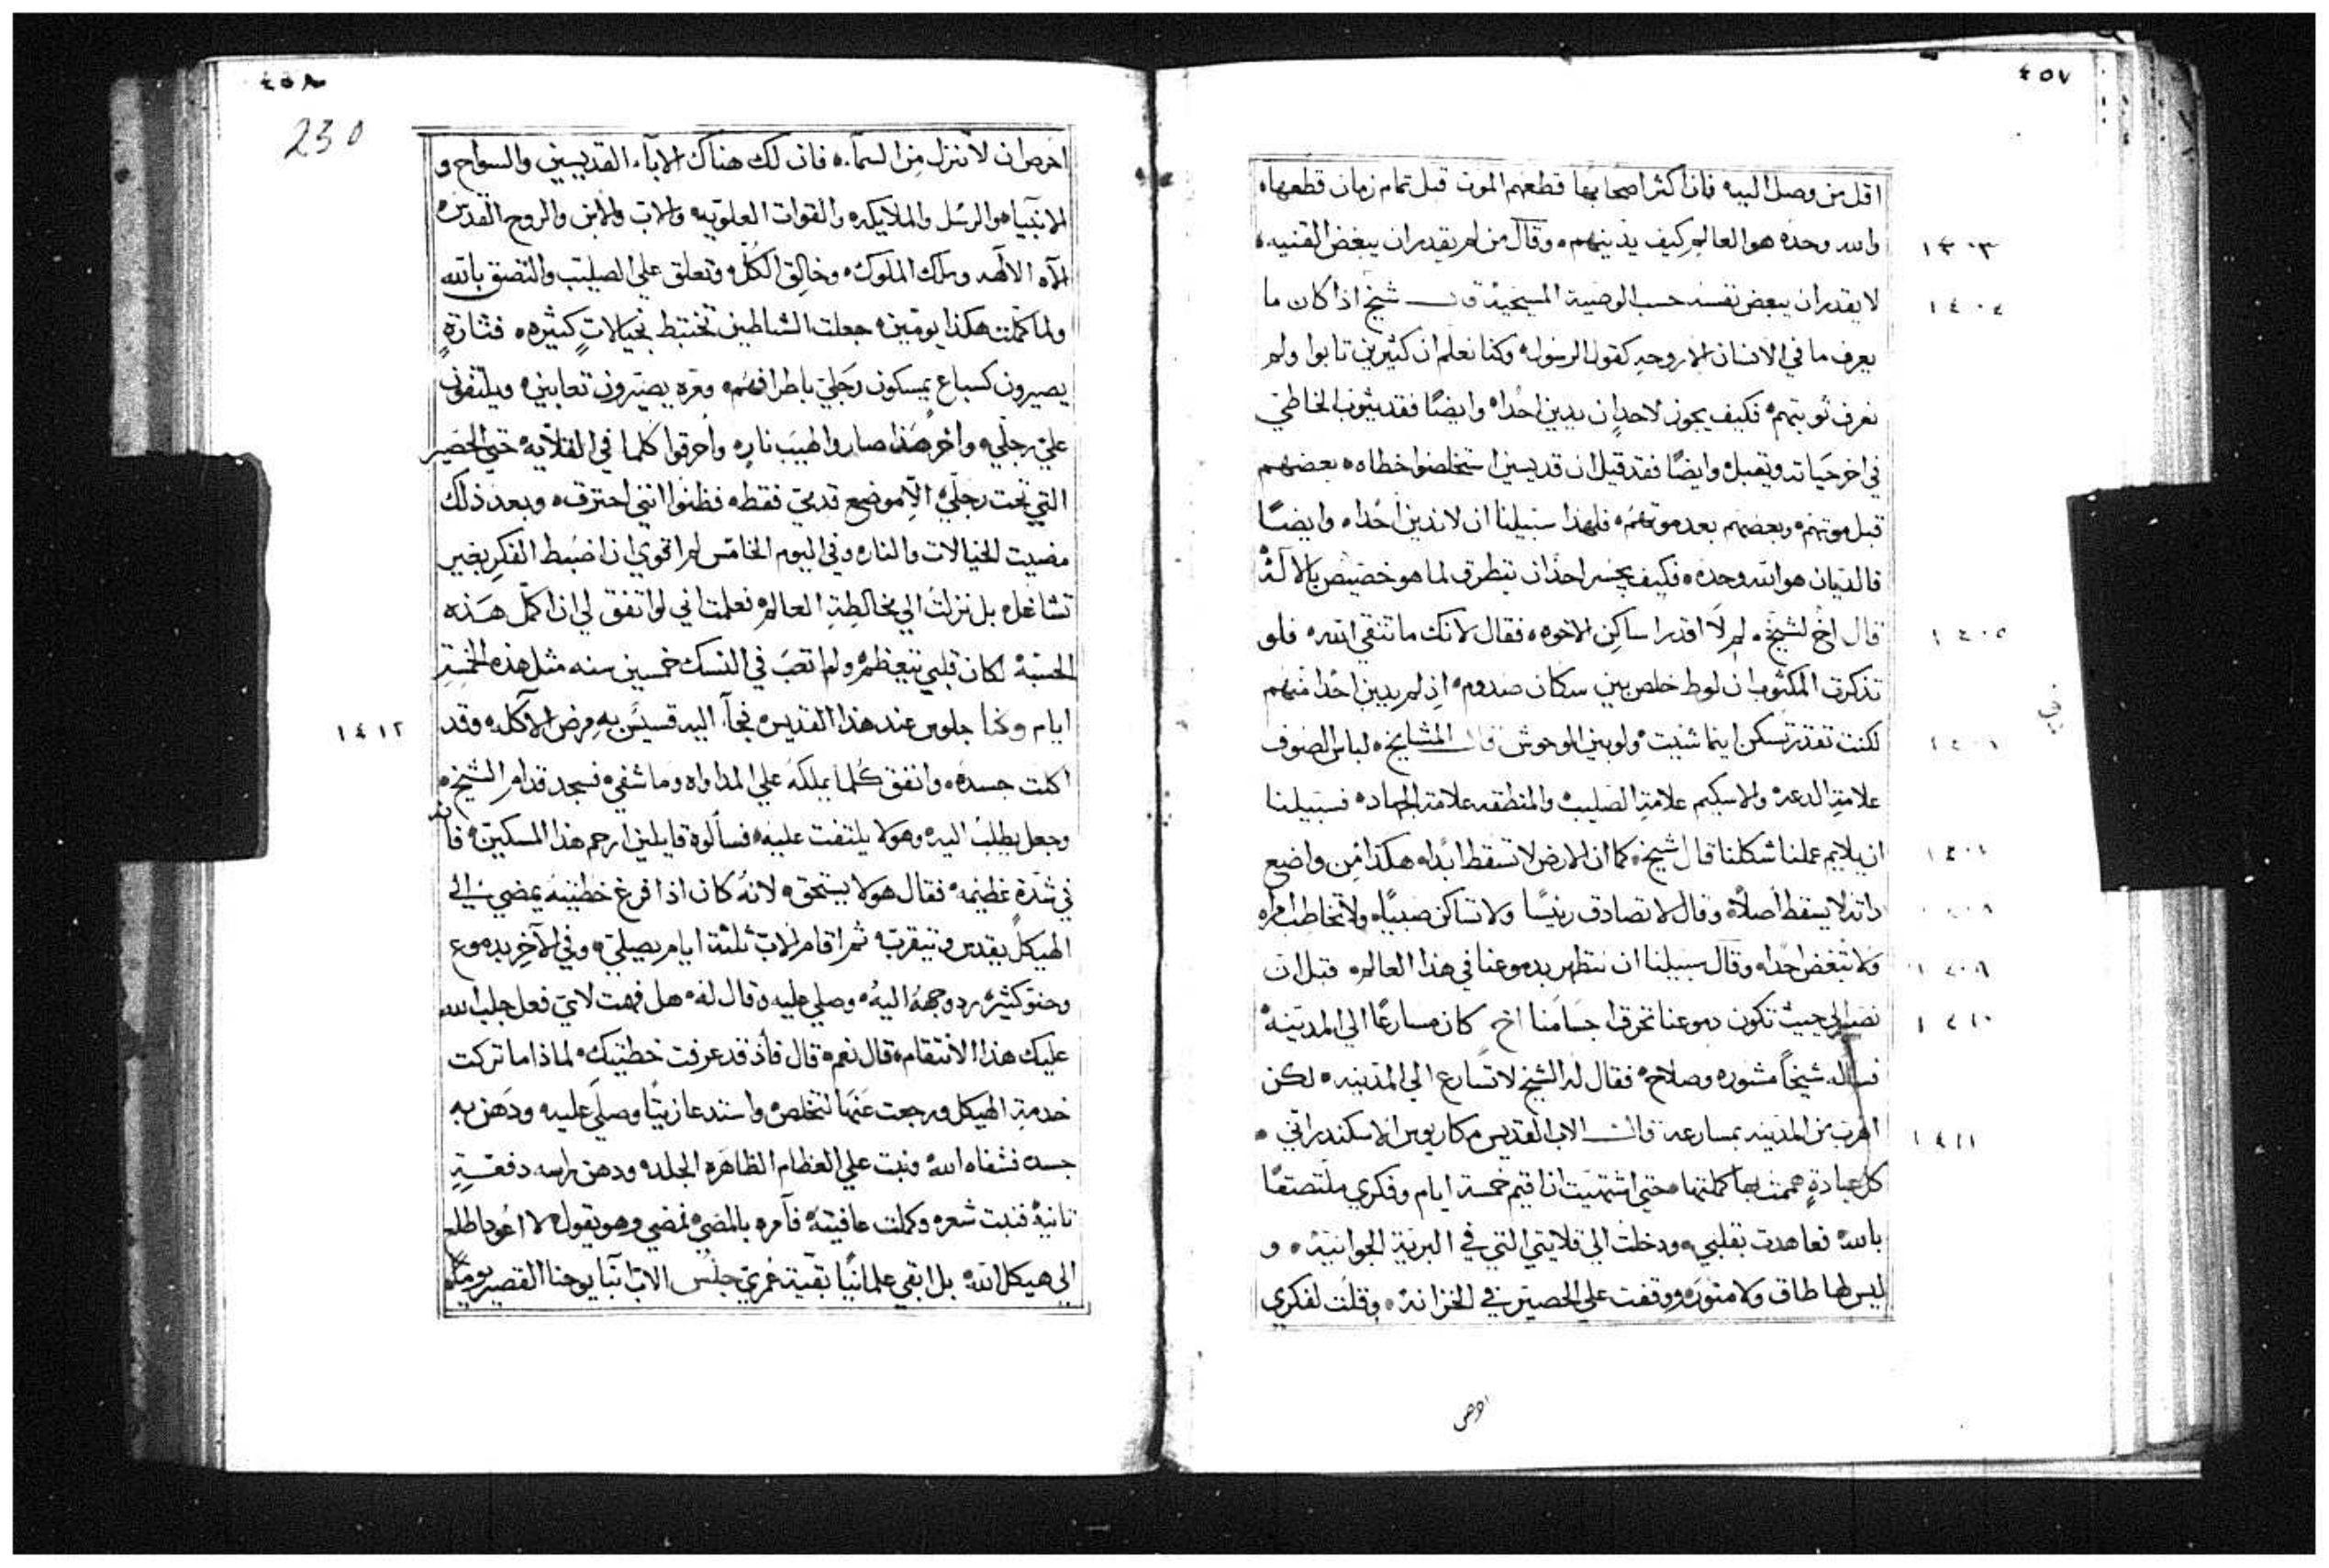 ٤٥٧
اقل من وصل اليه فان اكثر اصحابها قطعهم الموت قبل تمام زمان قطعها ه
١٤٠٣
والله وحده هو العالم كيف يدينهم ه وقال من لم يقدر ان يبغض القنيه ه
١٤٠٤
لا يقدر ان يبغض نفسه حسب الوصية المسيحية قال شيخ اذا كان ما
يعرف ما في الانسان الا روحه كقول الرسول ه وكنا نعلم ان كثيرين تابوا ولم
نعرف توبتهم ه فكيف يجوز لاحد ان يدين احدا ه وايضًا فقد يتوب الخاطي
في اخر حياته ويقبل ه وايضًا فقد قيل ان قديسين استخلصوا خطاه ه بعضهم
قبل موتهم ه وبعضهم بعد موتهم ه فلهذا سبيلنا ان لا ندين احدا ه وايضًا
فالديان هو الله وحده ه فكيف يجسر احد ان يتطرق لما هو خصيص بالاله
١٤٠٥
قال اخ لشيخ ه لم لا اقدر اساكن الاخوه ه فقال لانك ما تتقي الله ه فلو
تذكرت المكتوب ان لوط خلص بين سكان صدوم ه اذ لم يدين احدا منهم
١٤٠٦
لكنت تقدر تسكن اينما شيت ه ولو بين الوحوش قال المشايخ ه لباس الصوف
علامة الدعه والاسكيم علامة الصليب ه والمنطقه علامة الجهاد ه فسبيلنا
ان يلايم عملنا شكلنا قال شيخ ه كما ان الارض لا تسقط ابدا ه هكذا من واضع
ذاته لا يسقط اصلاً ه وقال لا تصادق رئيسًا ولا تساكن صبيًا ه ولا تخاطب امراه
ولا تبغض احدا ه وقال سبيلنا ان نتطهر بدموعنا في هذا العالم ه قبل ان
١٤١٠
نصير الى حيث تكون دموعنا تحرق اجسامنا اخ كان مسارعًا الى المدينة ه
فسال شيخًا مشوره وصلاح ه فقال له الشيخ لا تسارع الى المدينه ه لكن
١٤١١
اهرب من المدينه بمسارعة قال الاب القديس مكاريوس الاسكندراني ه
كل عبادةٍ هممت بها كملتها ه حتى اشتهيت ان اقيم خمسة ايام وفكري ملتصقًا
بالله ه فعاهدت بقلبي ه ودخلت الى قلايتي التي في البرية الجوانية ه و
ليس لها طاق ولا منور ه ووقفت على الحصير في الخزانة ه وقلت لفكري
احرص
٤٥٨
230
احرص ان لا تنزل من السماء ه فان لك هناك الاباء القديسين والسواح و
الانبياء والرسل والملايكه ه والقوات العلويه والاب والابن والروح القدس ه
الاه الالهه وملك الملوك ه وخالق الكل ه وتعلق على الصليب والتصق بالله
ولما كملت هكذا يومين ه جعلت الشياطين تختبط بخيالاتٍ كثيره ه فتارةٍ
يصيرون كسباع يمسكون رجلي باطرافهم ه ومره يصيرون تعابين ه ويلتفون
على رجلي ه واخر هذا صاروا لهيب نار ه واحرقوا كلما في القلايه ه حتى الحصير
التي تحت رجلي ه الا موضع قدمي فقط ه فظنوا انني احترق ه وبعد ذلك
مضيت الخيالات والنار ه وفي اليوم الخامس لم اقوي ان اضبط الفكر بغير
تشاغل ه بل نزلت الى مخالطة العالم ه فعلمت اني لو اتفق لي ان اكمل هذه
الحسنة لكان قلبي يتعظم ه ولم اتعب في النسك خمسين سنه مثل هذه الخمسة
١٤١٢
ايام وكنا جلوس عند هذا القديس ه فجاء اليه قسيس به مرض الاكله ه وقد
اكلت جسده ه وانفق كلما يملكه على المداواه وما شفي ه فسجد قدام الشيخ ه
وجعل يطلب اليه وهو لا يلتفت عليه ه فسألوه قايلين ارحم هذا المسكين ه فانه
في شدة عظيمه ه فقال هو لا يستحق ه لانه كان اذا فرغ خطيته يمضي الى
الهيكل يقدس ويتقرب ه ثم اقام الاب ثلثة ايام يصلي ه وفي الاخر بدموع
وحنو كثير ه رد وجهه اليه ه وصلى عليه وقال له ه هل فهمت لاي فعل جلب الله
عليك هذا الانتقام ه قال نعم ه قال فأذ قد عرفت خطيتك ه لماذا ما تركت
خدمة الهيكل ورجعت عنها لتخلص ه واستدعا زيتًا وصلى عليه ودهن به
جسده فشفاه الله ه ونبت على العظام الظاهره الجلد ه ودهن راسه دفعةٍ
ثانية ه فنبت شعره وكملت عافيته ه فآمره بالمضي ه فمضي وهو يقول ه لا اعود اطلع
الى هيكل الله ه بل ابقى علمانيًا بقية عمري جلس الاب انبا يوحنا القصير يومًا